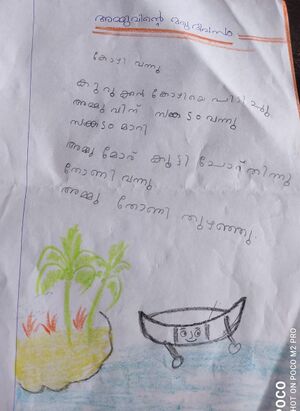 അമ്മുവിന്റെ ഒരു ദിവസം
കോഴി വന്നു
കുറുക്കൻ കോഴിയെ പിടിച്ചു
അമ്മു വിന് സങ്കടം വന്നു
സങ്കടം മാറി
അമ്മു മോര് കൂട്ടി ചോറ് തിന്നു
തോണി വന്നു
അമ്മു തോണി തുഴഞ്ഞു.
POCO
SHOT ON POCO M2 PRO